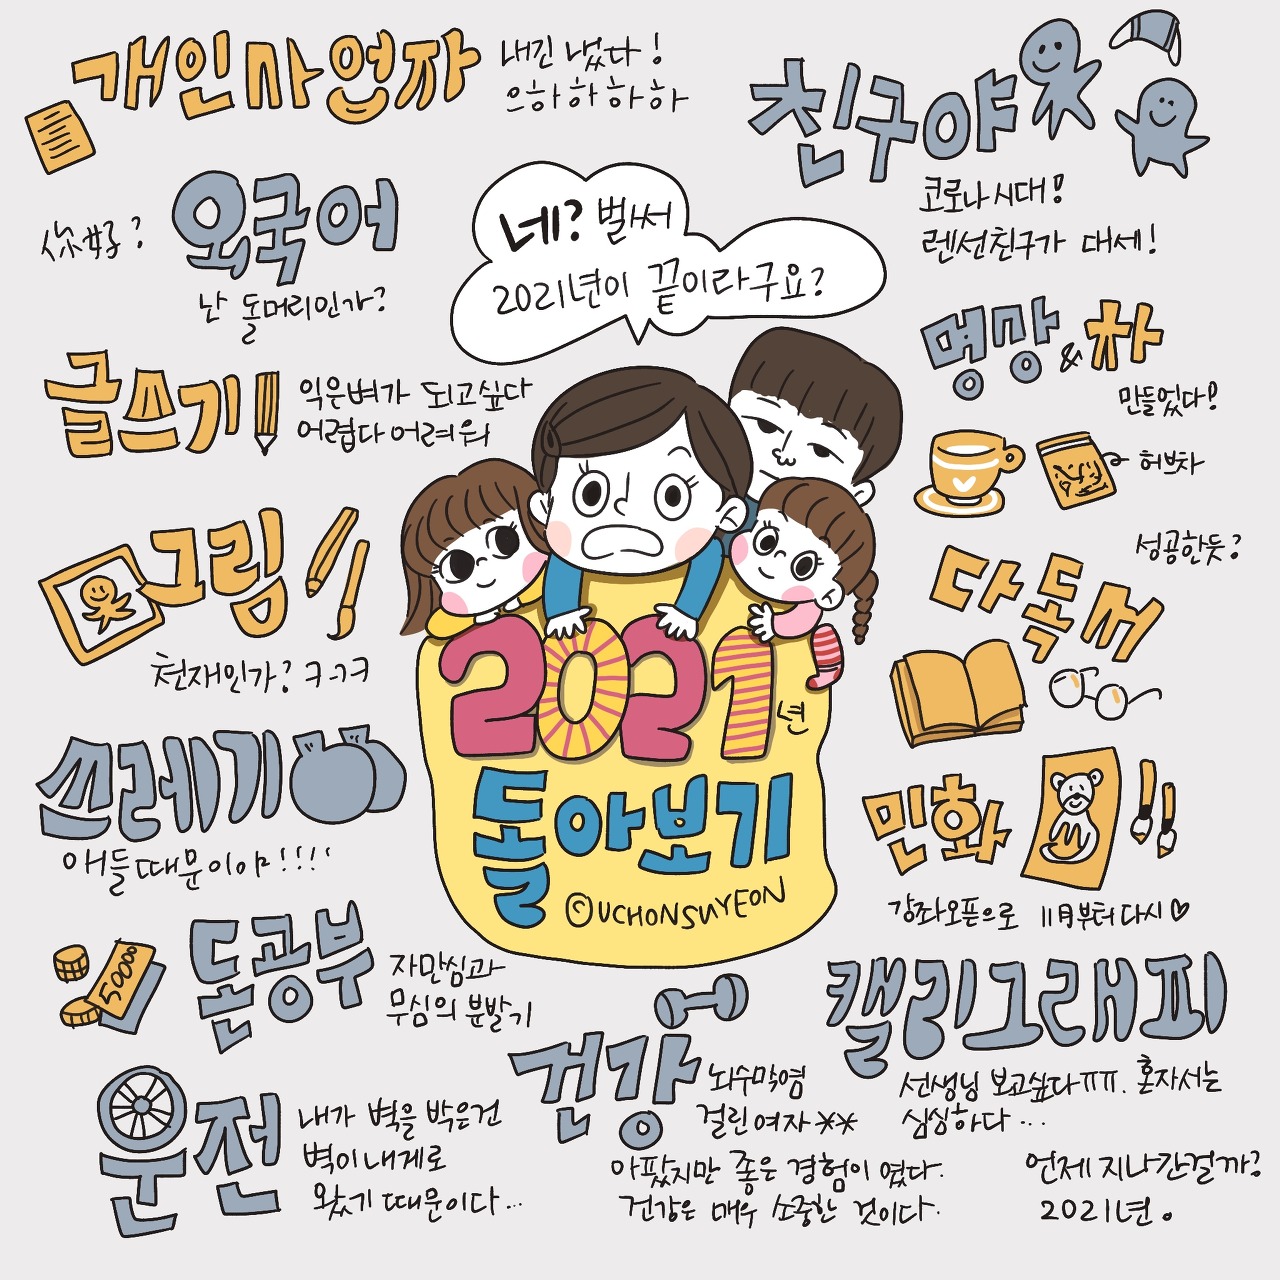 개인사업자
내긴 냈다!
으하하하하
친구야
코로나시대!
렌선친구가 대세!
你好?
외국어
난 돌머리인가?
네? 벌써
2021년이 끝이라구요?
명상&차
만들었다!
허브차
성공한듯?
글쓰기
익은벼가 되고싶다
어렵다 어려워
그림
천재인가? ㅋㅋㅋ
다독서
2021년
돌아보기
©UCHONSUYEON
쓰레기
애들때문이야!!!!
민화
강좌오픈으로 11月부터 다시♡
50000
돈공부
자만심과
무심의 분발기
캘리그래피
선생님 보고싶다ㅠㅠ. 혼자서는
심심하다...
건강
뇌수막염
걸린여자**
아팠지만 좋은 경험이 였다.
건강은 매우 소중한 것이다.
운전
내가 벽을 박은건
벽이내게로
왔기 때문이다...
언제 지나간걸까?
2021년.